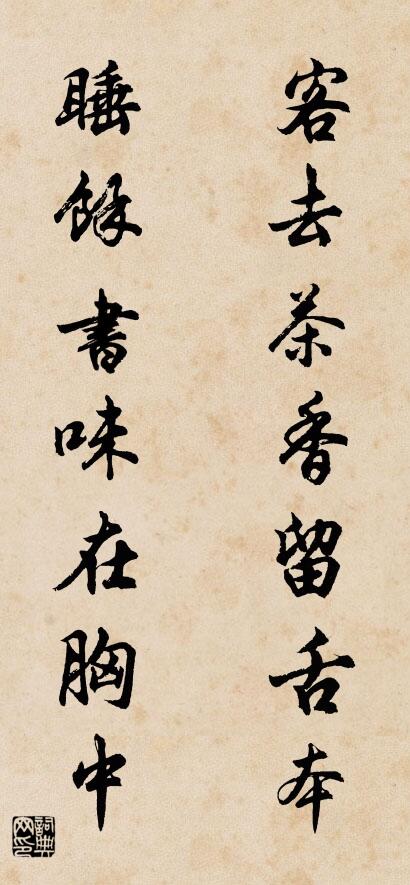 客去茶香留舌本
睡餘書味在胸中
詞典网印